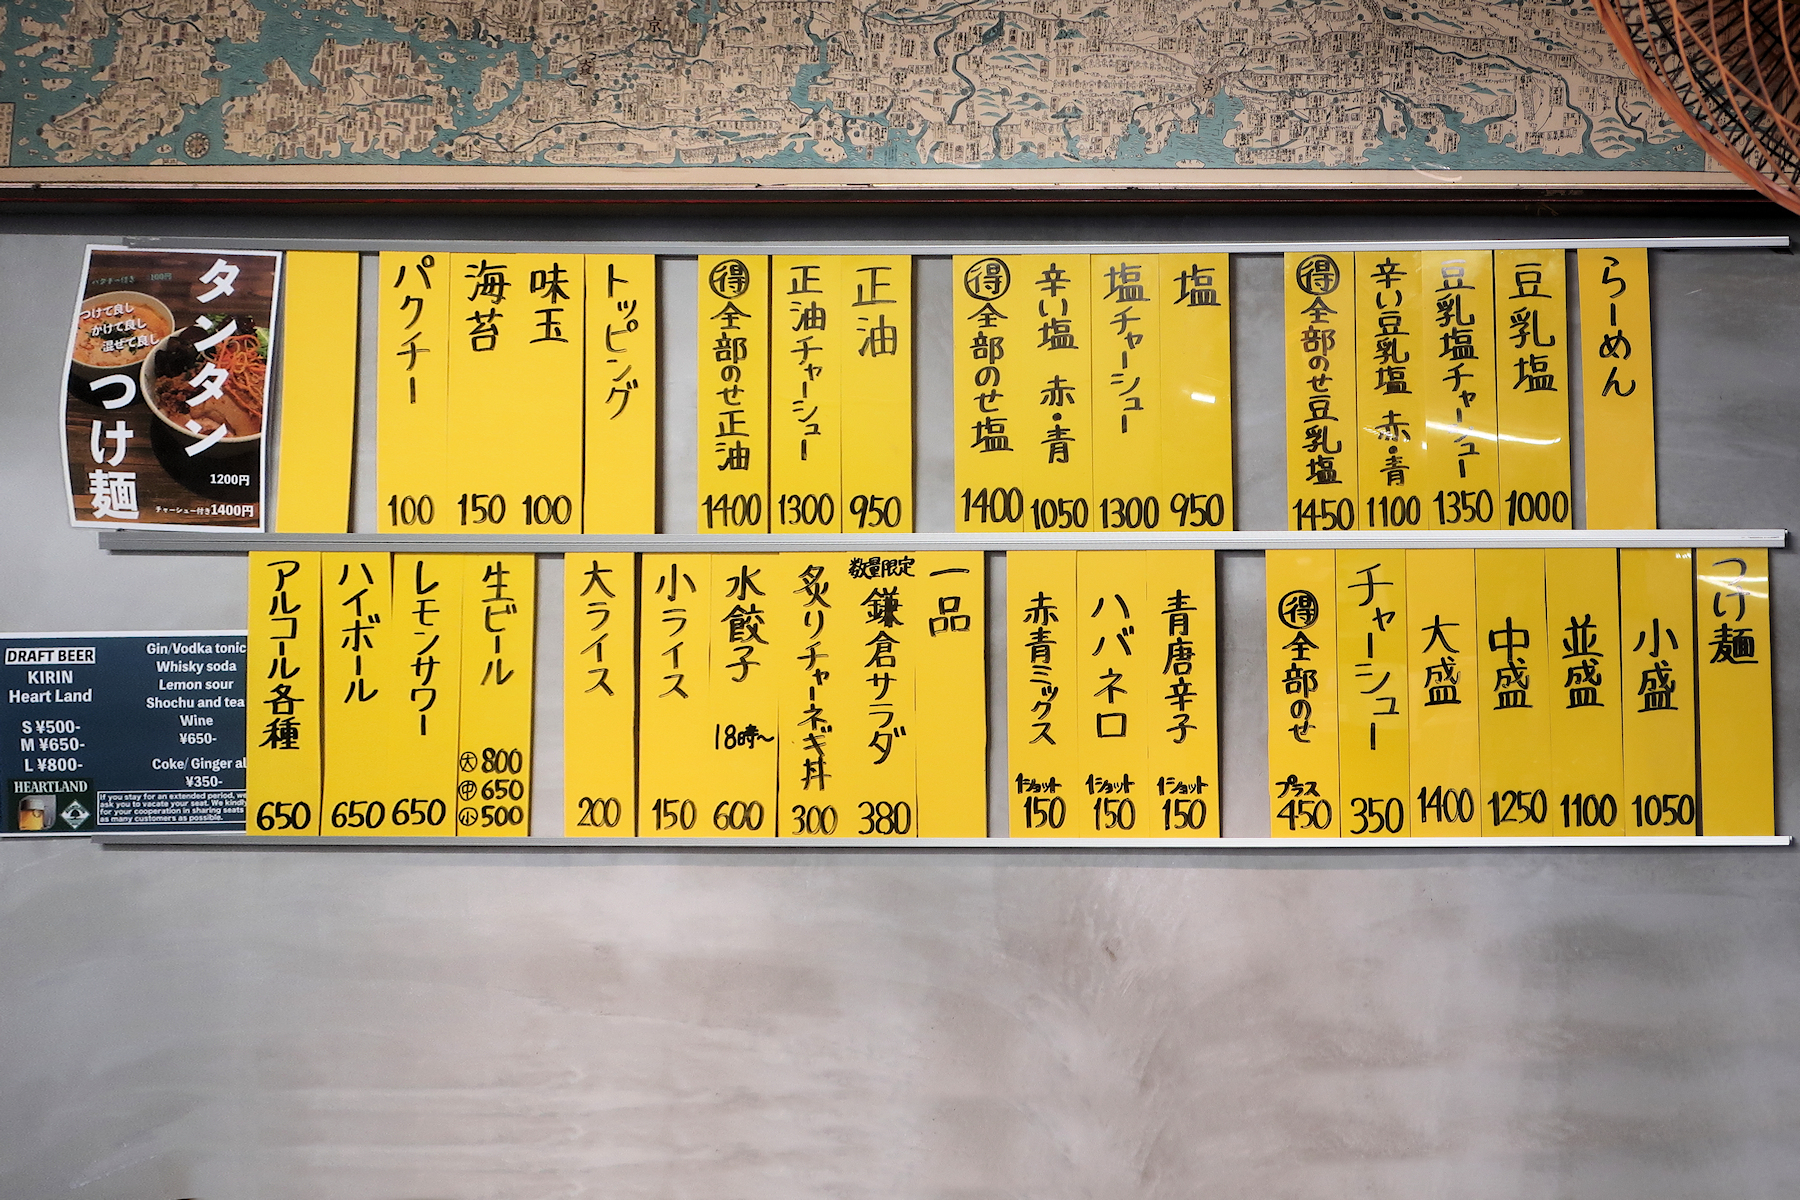 らーめん
豆乳塩
1000
豆乳塩チャーシュー
1350
辛い豆乳塩 赤・青
1100
得全部のせ豆乳塩
1450
塩
950
塩チャーシュー
1300
辛い塩 赤・青
1050
得全部のせ塩
1400
正油
950
正油チャーシュー
1300
得全部のせ正油
1400
トッピング
味玉
100
海苔
150
パクチー
100
タンタン
つけ麺
パクチー付き 100円
つけて良し
かけて良し
混ぜて良し
1200円
チャーシュー付き1400円
つけ麺
小盛
1050
並盛
1100
中盛
1250
大盛
1400
チャーシュー
350
得全部のせ
プラス
450
青唐辛子
1ショット
150
ハバネロ
1ショット
150
赤青ミックス
1ショット
150
一品
数量限定
鎌倉サラダ
380
炙りチャーネギ丼
300
水餃子
18時〜
600
小ライス
150
大ライス
200
生ビール
大 800
中 650
小 500
レモンサワー
650
ハイボール
650
アルコール各種
650
DRAFT BEER
KIRIN
Heart Land
S ¥500-
M ¥650-
L ¥800-
HEARTLAND
Gin/Vodka tonic
Whisky soda
Lemon sour
Shochu and tea
Wine
¥650-
Coke/ Ginger al
¥350-
If you stay for an extended period, we
ask you to vacate your seat. We kindly
for your cooperation in sharing seats
as many customers as possible.